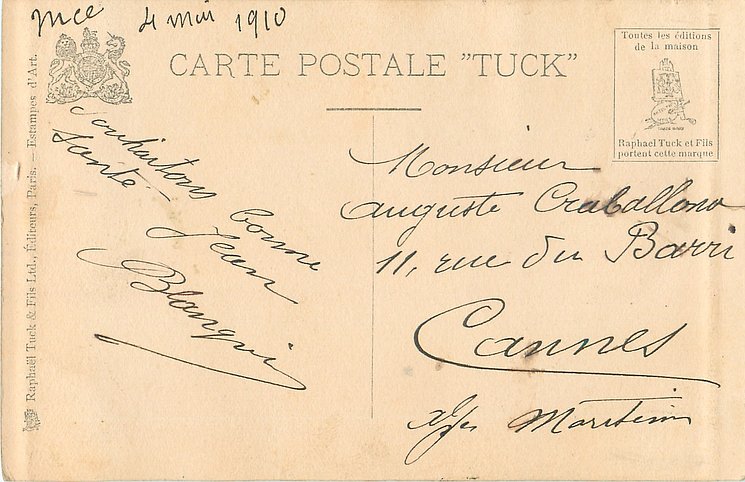 Nice 4 Mai 1910
CARTE POSTALE "TUCK"
Toutes les éditions
de la maison
TRADE MARK
Raphael Tuck et Fils
portent cette marque
Souhaitons bonne
santé - Jean
Blanqui
Monsieur
Auguste Craballona
11, rue du Barri
Cannes
Alpes Maritimes
Raphaël Tuck & Fils Ltd., Éditeurs, Paris. — Estampes d'Art.